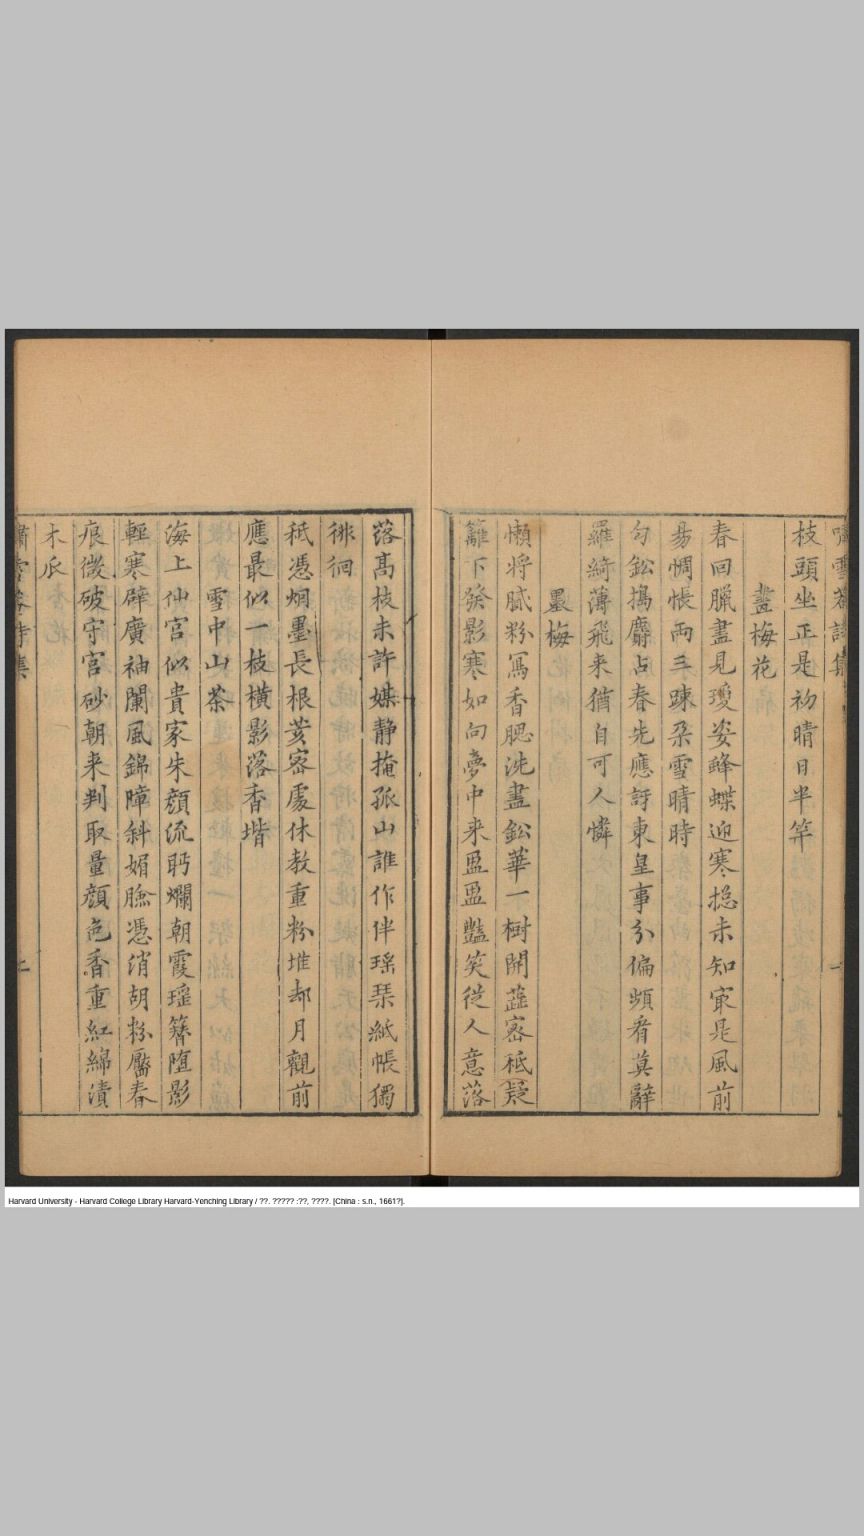 嘯雪菴詩集
枝頭坐正是初晴日半竿
畫梅花
春回臘盡見瓊姿蜂蝶迎寒揔未知㝡是風前
易惆悵兩三疎朶雪晴時
勻鈆搗麝占春先應訝東皇事分偏頻看莫辭
羅綺薄飛来猶自可人憐
墨梅
懶将膩粉冩香腮洗盡鈆華一樹開葢宻秪疑
籬下發影寒如向夢中来盈盈豔笑従人意落
落髙枝未許媒静掩孤山誰作伴瑶琹紙帳獨
徘徊
秪憑烟墨長根荄宻處休教重粉堆却月觀前
應最似一枝横影落香堦
雪中山茶
海上仙宫似貴家朱顔流眄爛朝霞瑶簪堕影
輕寒辟廣袖闌風錦障斜媚臉憑消胡粉靨春
痕微破守宫砂朝来判取量顔色香重紅綿漬
木瓜
嘯雪菴詩集